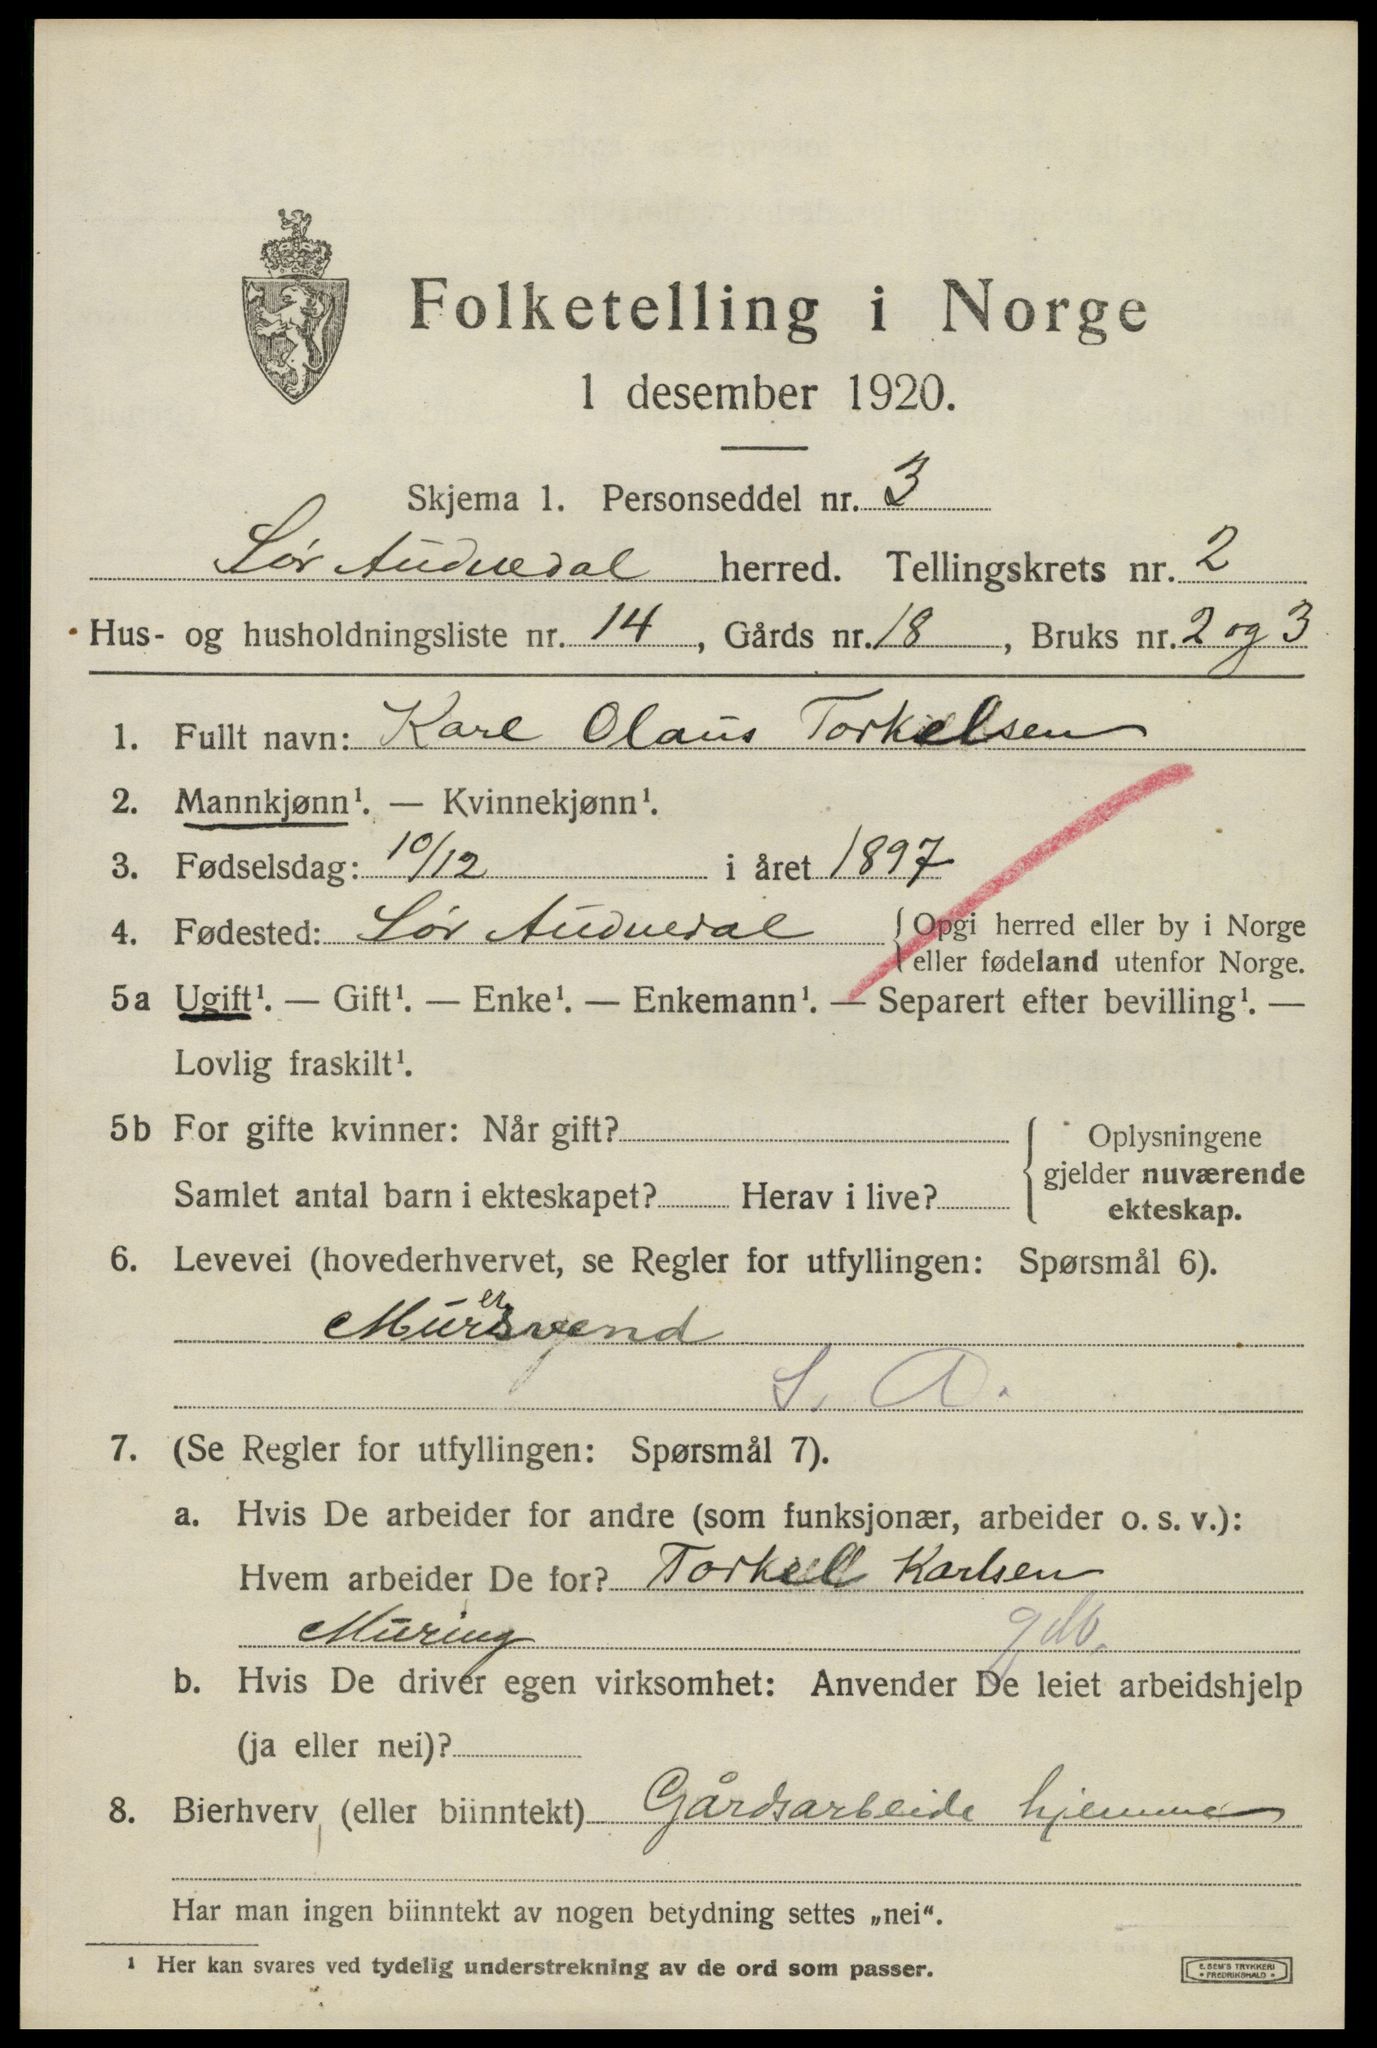 Folketelling i Norge
1 desember 1920.
Skjema 1. Personseddel nr. 3
Sør Audnedal herred. Tellingskrets nr. 2
Hus- og husholdningsliste nr. 14, Gårds nr. 18, Bruks nr. 2 og 3
1. Fullt navn: Karl Olaus Torkelsen
2. Mannkjønn¹. — Kvinnekjønn¹.
3. Fødselsdag: 10/12 i året 1897
4. Fødested: Sør Audnedal { Opgi herred eller by i Norge
eller fødeland utenfor Norge.
5a Ugift¹. — Gift¹. — Enke¹. — Enkemann¹. — Separert efter bevilling¹. —
Lovlig fraskilt¹.
5b For gifte kvinner: Når gift?
Samlet antal barn i ekteskapet? Herav i live?
{ Oplysningene
gjelder nuværende
ekteskap.
6. Levevei (hovederhvervet, se Regler for utfyllingen: Spørsmål 6).
er
Mursvend
S. A.
7. (Se Regler for utfyllingen: Spørsmål 7).
a. Hvis De arbeider for andre (som funksjonær, arbeider o. s. v.):
Hvem arbeider De for? Torkell Karlsen
Muring
b. Hvis De driver egen virksomhet: Anvender De leiet arbeidshjelp
(ja eller nei)?
8. Bierhverv (eller biinntekt) Gårdsarbeide hjemme
Har man ingen biinntekt av nogen betydning settes „nei“.
¹ Her kan svares ved tydelig understrekning av de ord som passer.
E. SEM'S TRYKKERI
FREDRIKSHALD